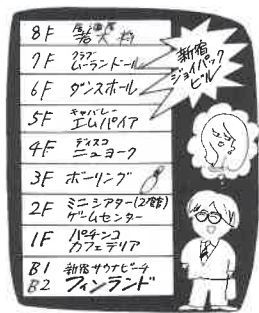 8F 居酒屋
若大将
7F クラブ
ムーランドール
6F ダンスホール
5F キャバレー
エムパイア
4F ディスコ
ニューヨーク
3F ボーリング
2F ミニシアター(2館)
ゲームセンター
1F パチンコ
カフェテリア
B1 新宿サウナビーチ
B2 フィンランド
新宿
ジョイパック
ビル